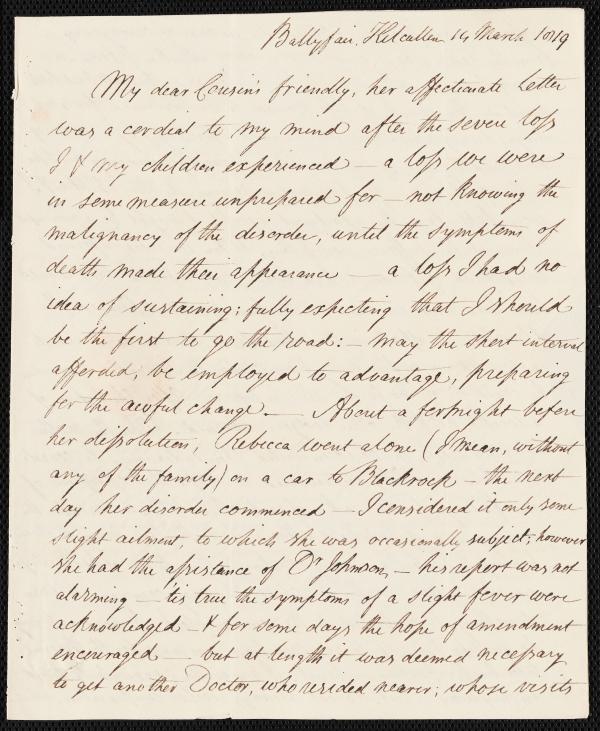 Ballyfair. Kilcullen 14 March 1819
My dear Cousin's friendly, her affectionate Letter
was a cordial to my mind after the severe loss
I & my children experienced — a loss we were
in some measure unprepared for — not knowing the
malignancy of the disorder, until the symptoms of
death made their appearance — a loss I had no
idea of sustaining; fully expecting that I should
be the first to go the road: — may the short interval
afforded, be employed to advantage, preparing
for the awful change. — About a fortnight before
her dissolution, Rebecca went alone (I mean, without
any of the family) on a car to Blackrock — the next
day her disorder commenced — I considered it only some
slight ailment, to which she was occasionally subject; however
she had the assistance of Dr Johnson — his report was not
alarming — tis true the symptoms of a slight fever were
acknowledged — & for some days the hope of amendment
encouraged — but at length it was deemed necessary
to get another Doctor, who resided nearer; whose visits